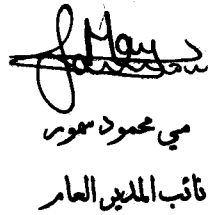 May
مي محمود سمور
نائب المدير العام